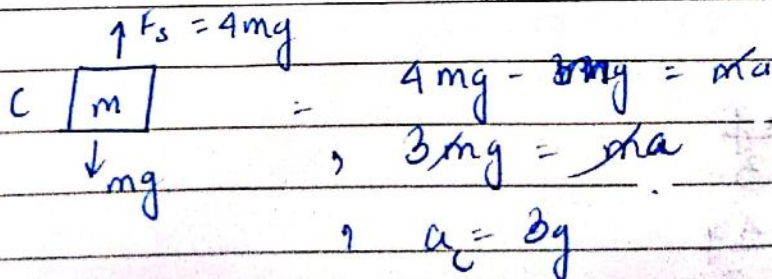 ↑ Fs = 4mg
C m = 4mg - mg = ma
↓ mg , 3mg = ma
, a_c = 3g